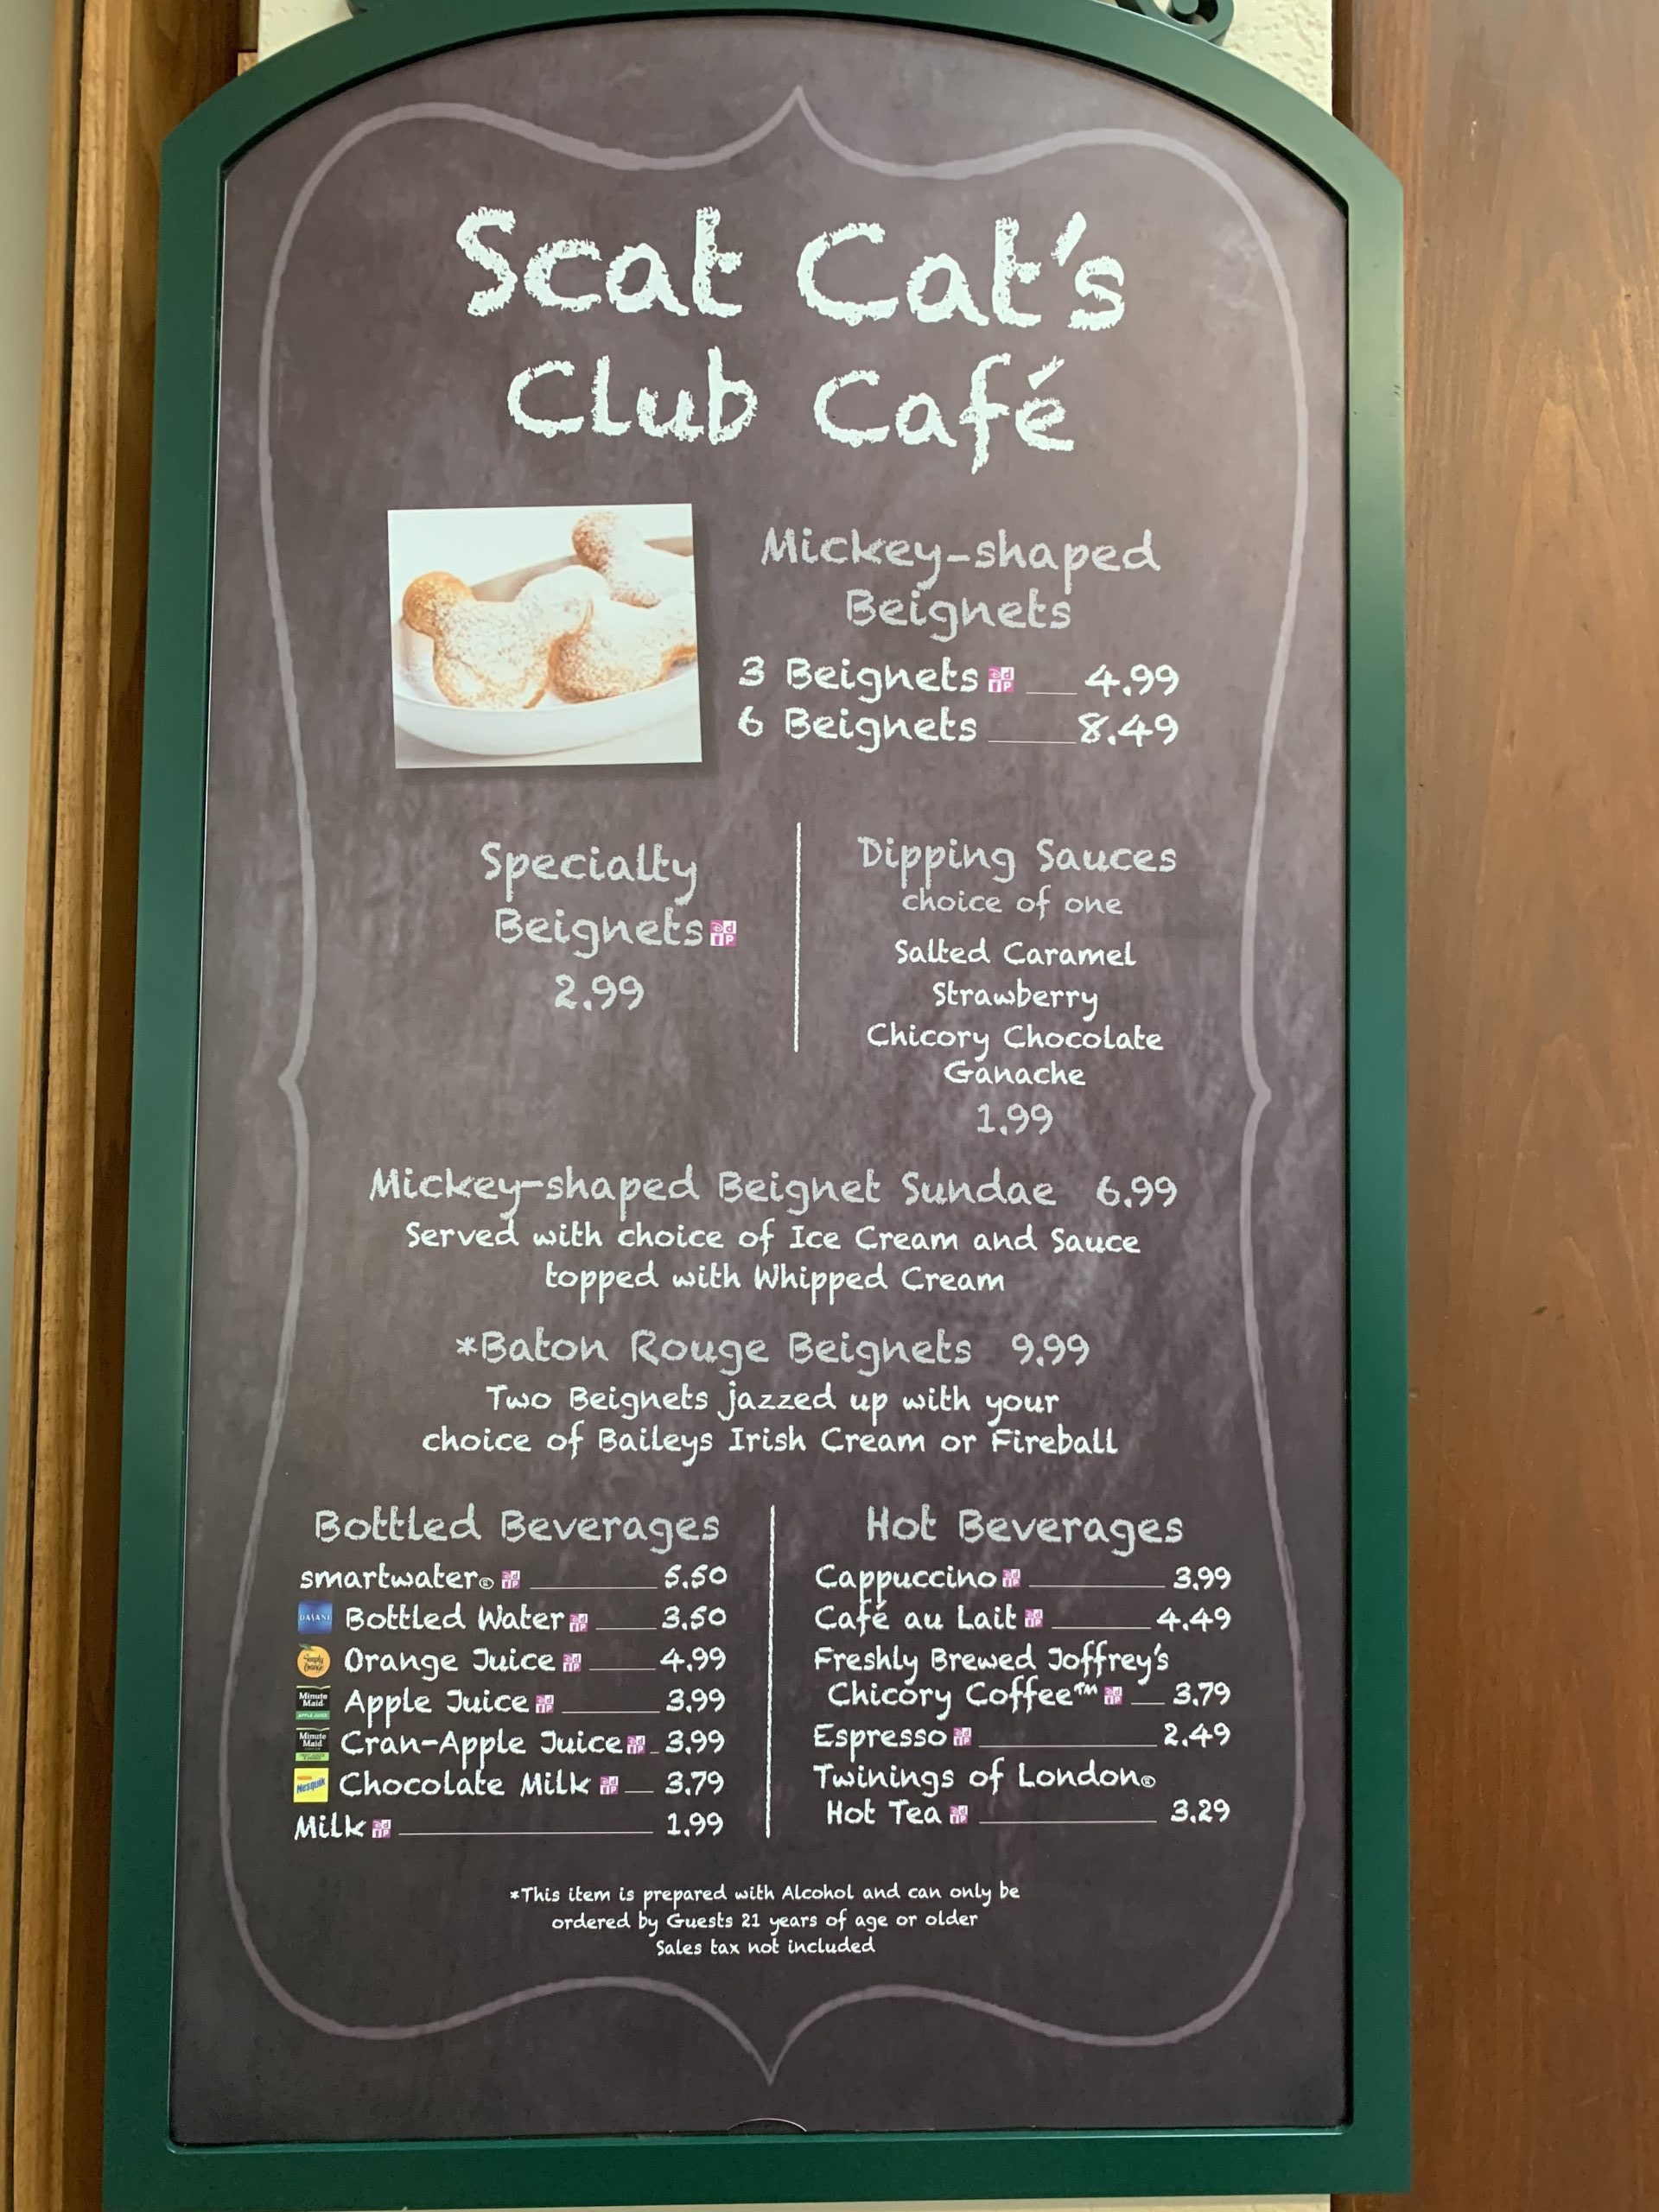 Scat Cat's
Club Café
Mickey-shaped
Beignets
3 Beignets 4.99
6 Beignets 8.49
Specialty
Beignets
2.99
Dipping Sauces
choice of one
Salted Caramel
Strawberry
Chicory Chocolate
Ganache
1.99
Mickey-shaped Beignet Sundae 6.99
Served with choice of Ice Cream and Sauce
topped with Whipped Cream
*Baton Rouge Beignets 9.99
Two Beignets jazzed up with your
choice of Baileys Irish Cream or Fireball
Bottled Beverages
smartwater® 5.50
DASANI Bottled Water 3.50
Simply Orange Orange Juice 4.99
Minute Maid APPLE JUICE Apple Juice 3.99
Minute Maid Cran-Apple Juice 3.99
Nesquik Chocolate Milk 3.79
Milk 1.99
Hot Beverages
Cappuccino 3.99
Café au Lait 4.49
Freshly Brewed Joffrey's
Chicory Coffee™ 3.79
Espresso 2.49
Twinings of London®
Hot Tea 3.29
*This item is prepared with Alcohol and can only be
ordered by Guests 21 years of age or older
Sales tax not included